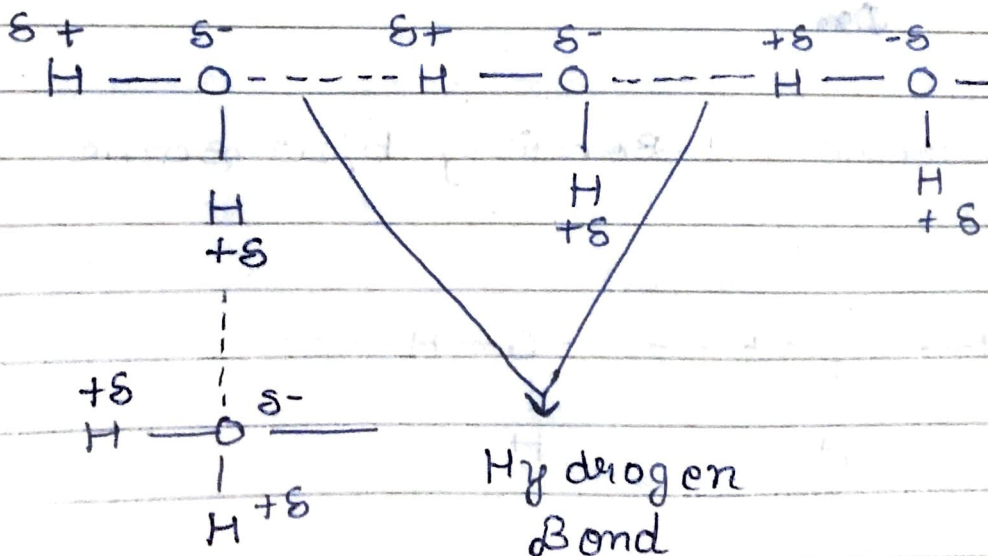 δ+ δ- δ+ δ- +δ -δ
H — O ----- H — O ----- H — O —
| | |
H H H
+δ +δ +δ
+δ δ-
H — O —
|
H +δ
Hydrogen
Bond